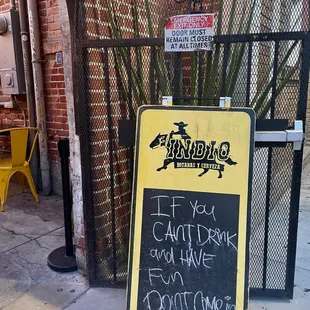 EMERGENCY
EXIT ONLY
DOOR MUST
REMAIN CLOSED
AT ALL TIMES
INDIO
BOTANAS Y CERVEZA
IF YOU
CAN'T DRINK
and HAVE
FUN
DON'T COME in